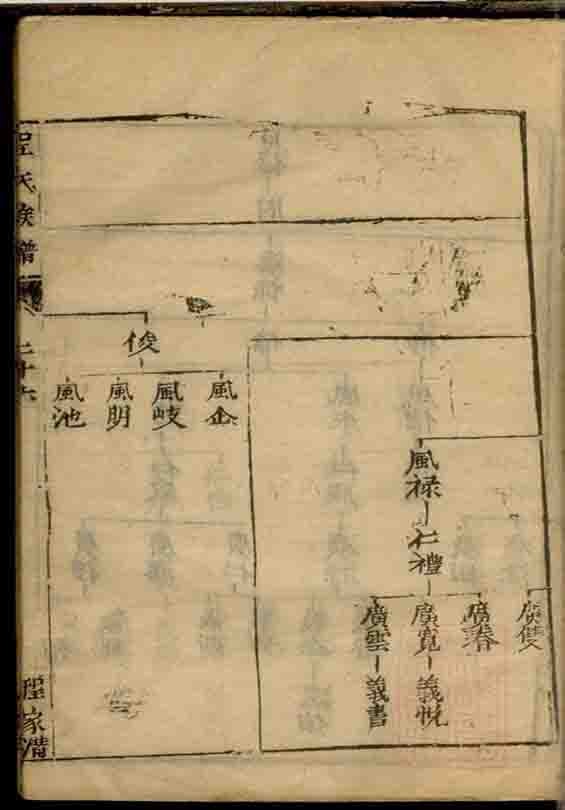 廣雙
風禄
仁禮
廣春
廣寬
義悅
廣雲
義書
俊
風企
風岐
風明
風池
程氏族譜
二十六
程家潽